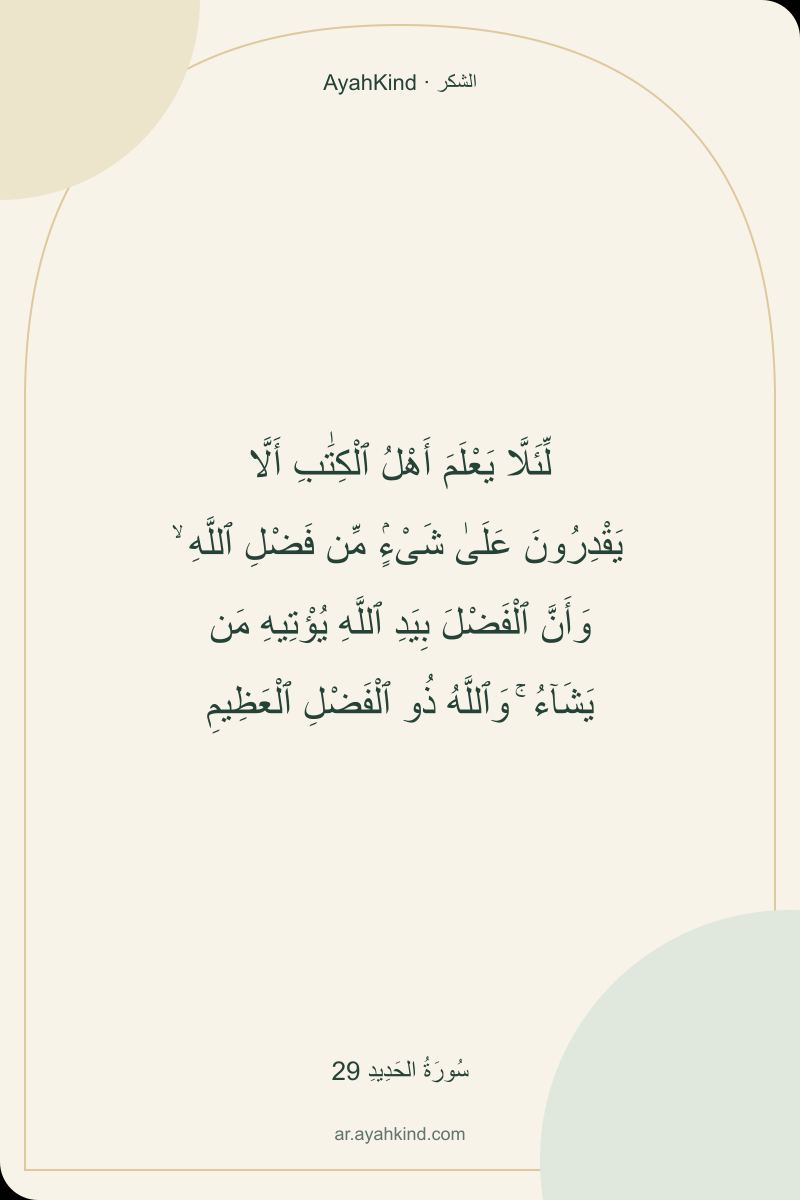 AyahKind · الشكر
لِّئَلَّا يَعْلَمَ أَهْلُ ٱلْكِتَٰبِ أَلَّا
يَقْدِرُونَ عَلَىٰ شَىْءٍۢ مِّن فَضْلِ ٱللَّهِ ۙ
وَأَنَّ ٱلْفَضْلَ بِيَدِ ٱللَّهِ يُؤْتِيهِ مَن
يَشَآءُ ۚ وَٱللَّهُ ذُو ٱلْفَضْلِ ٱلْعَظِيمِ
سُورَةُ الحَدِيدِ 29
ar.ayahkind.com